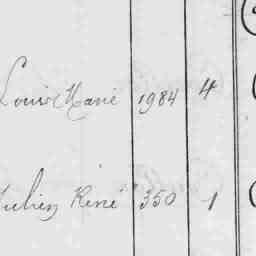 Louis Marie 1984 4
Julien René 350 1